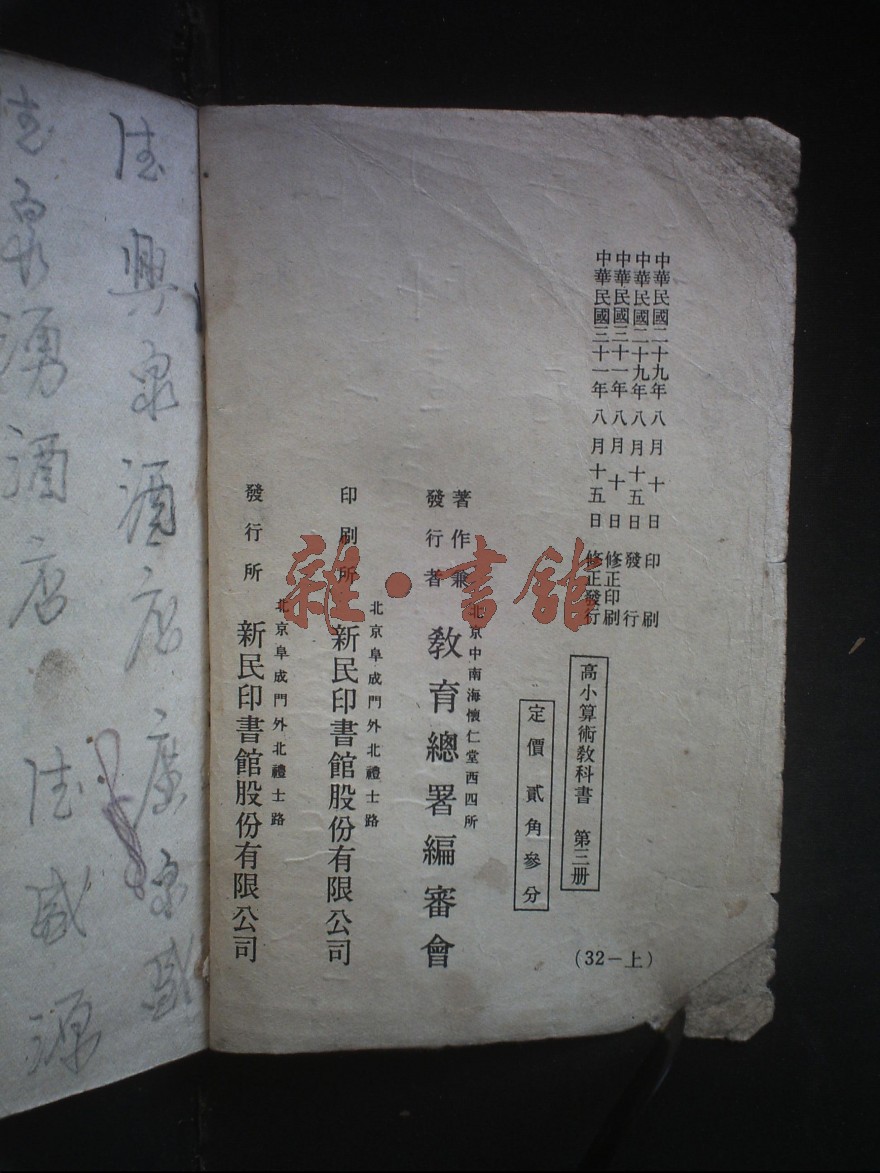 中華民國二十九年八月十日印刷
中華民國二十九年八月十五日發行
中華民國三十一年八月十日修正印刷
中華民國三十一年八月十五日修正發行
高小算術教科書 第三册
定價貳角參分
(32-上)
著作兼發行者
北京中南海懷仁堂西四所
教育總署編審會
印刷所
北京阜成門外北禮士路
新民印書館股份有限公司
發行所
北京阜成門外北禮士路
新民印書館股份有限公司
雜·書館
興泉酒店 廣泉盛
湧酒店 盛源